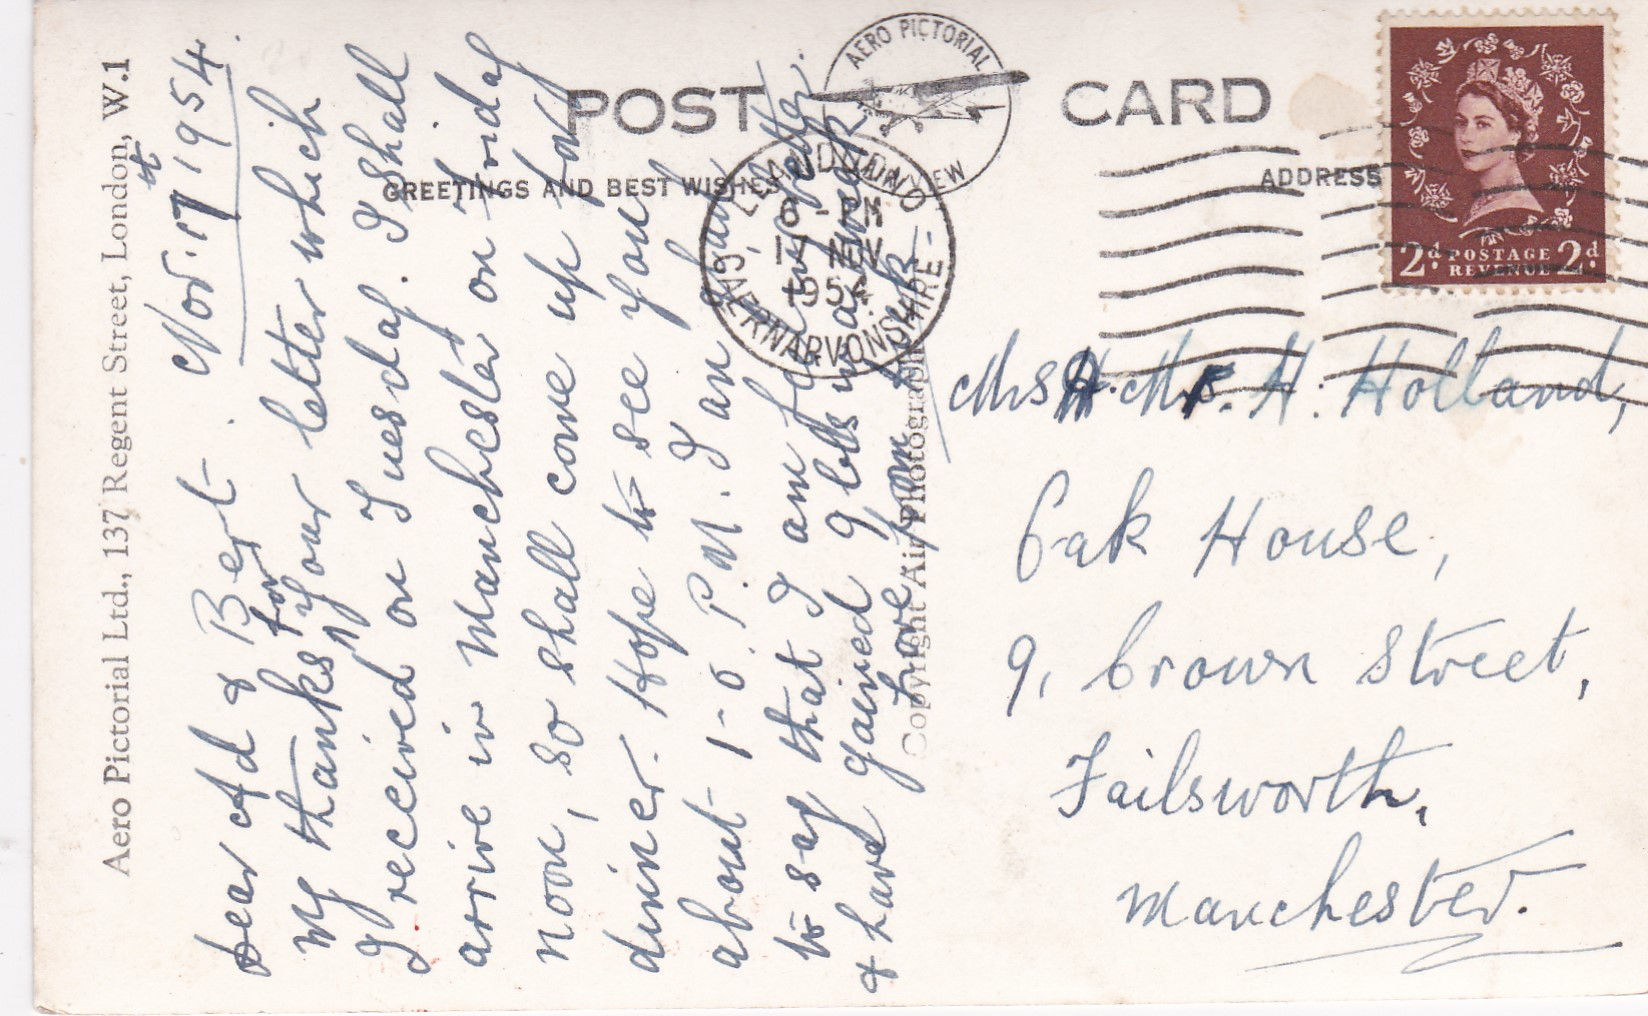 Aero Pictorial Ltd., 137 Regent Street, London, W.1
POST CARD
AERO PICTORIAL
VIEW
GREETINGS AND BEST WISHES
ADDRESS
LLANDUDNO
6 - PM
17 NOV
1954
CAERNARVONSHIRE
2d POSTAGE 2d
REVENUE
Nov. 17th 1954.
Dear Ad & Bert.
My thanks for your letter which
I received on Tuesday. I shall
arrive in Manchester on Friday
noon, so shall come up for
dinner. Hope to see you
about 1-0. P.M. I am glad
to say that I am fairly better
& have gained 9 lbs in a week
have from
Copyright Air Photograph
Mrs & Mr. H. Holland,
Oak House,
9, Crown Street,
Failsworth,
Manchester.